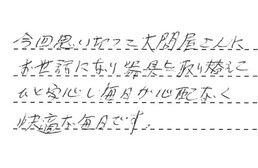 今回思い切って大問屋さんに
お世話になり器具を取り替えて
ひと安心し毎日が心配なく
快適な毎日です。